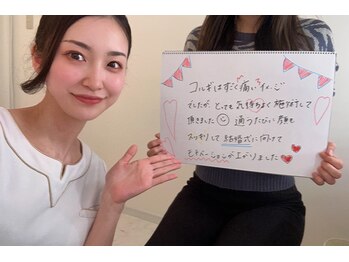 コルギはすごく痛いイメージ
でしたが、とっても気持ちよく施術して
頂きました 通うたびに顔も
スッキリして結婚式に向けて
モチベーションが上がりました